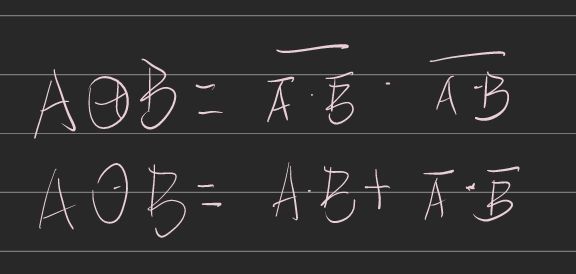 A⊕B = \overline{\overline{A}·\overline{B}} · \overline{A·B}
A⊙B = A·B + \overline{A}·\overline{B}